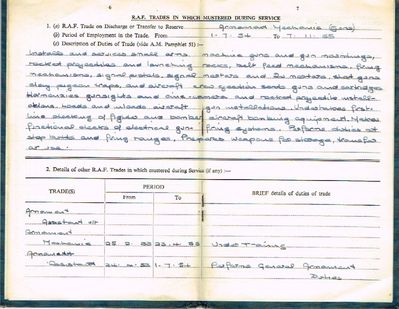 6
7
R.A.F. TRADES IN WHICH MUSTERED DURING SERVICE
1. (a) R.A.F. Trade on Discharge or Transfer to Reserve Armament Mechanic (Guns)
(b) Period of Employment in the Trade. From 1.7.54 To 7.11.55
(c) Description of Duties of Trade (vide A.M. Pamphlet 51) :—
Installs and services small arms, machine guns and gun mountings,
rocket projectiles and launching rocks, belt feed mechanisms, firing
mechanisms, signal pistols, signal mortars and 2in mortars, shot guns
clay pigeon traps, and aircraft crew ejection seats guns and cartridges
Harmonises gunsights and cine-camera and rocket projectile install-
ations, loads and unloads aircraft gun installations. Undertakes first-
line checking of fighter and bomber aircraft bombing equipment. Makes
functional checks of electrical gun-firing systems. Performs duties at
stop butts and firing ranges. Prepares weapons for storage, transfer
or use.
2. Details of other R.A.F. Trades in which mustered during Service (if any) :—
TRADE(S) PERIOD BRIEF details of duties of trade
From To
Armament
Assistant
Armament
Mechanic Under Training
Armament
Assistant 1.7.54 Performs General Armament
Duties